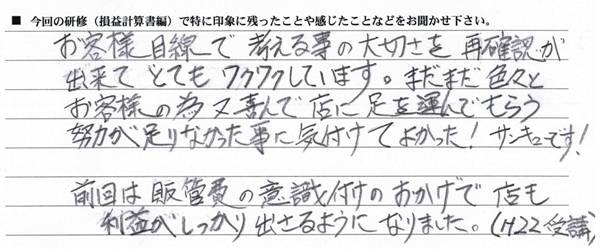 ■ 今回の研修（損益計算書編）で特に印象に残ったことや感じたことなどをお聞かせ下さい。
お客様目線で考える事の大切さを再確認が
出来てとてもワクワクしています。まだまだ色々と
お客様の為又喜んで店に足を運んでもらう
努力が足りなかった事に気付けてよかった！サンキューです！
前回は販管費の意識付のおかげで店も
利益がしっかり出さるようになりました。（H22受講）